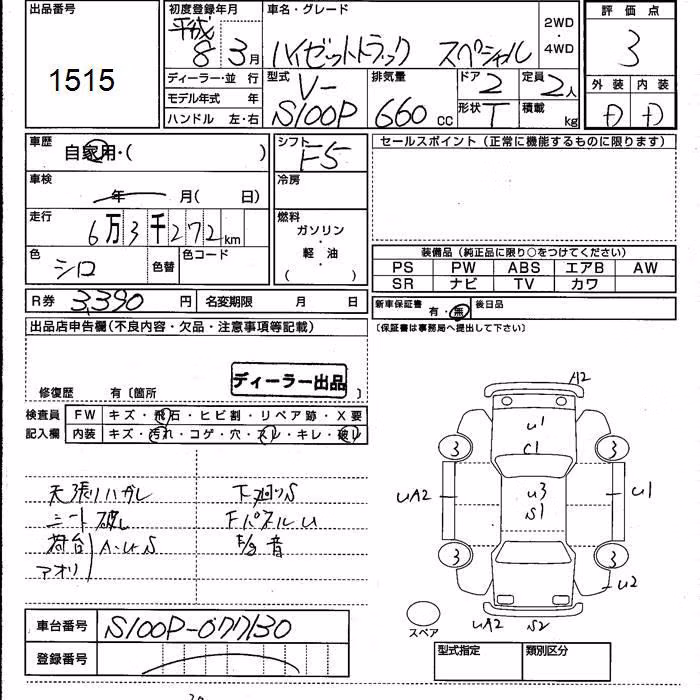 出品番号
1515
初度登録年月
平成
8 3月
車名・グレード
ハイゼットトラック スペシャル
2WD
・
4WD
評価点
3
外装 内装
D D
ディーラー・並行
モデル年式 年
ハンドル 左・右
型式
V-
S100P
排気量
660 cc
ドア 2
形状 T
定員 2人
積載 kg
車歴
自家用・( )
シフト
F5
セールスポイント (正常に機能するものに限ります)
車検
年 月( 日)
冷房
走行
6万3千272km
燃料
ガソリン
・
軽油
( )
色
シロ
色替
色コード
装備品 (純正品に限り○をつけてください)
PS PW ABS エアB AW
SR ナビ TV カワ
R券 3,390 円
名変期限 月 日
新車保証書 有・無
後日品
(保証書は事務局へ提出して下さい)
出品店申告欄(不良内容・欠品・注意事項等記載)
ディーラー出品
修復歴 有〔箇所 〕
検査員
記入欄
FW キズ・飛石・ヒビ割・リペア跡・X要
内装 キズ・汚れ・コゲ・穴・スレ・キレ・破レ
天張リハガレ
シート破レ
荷台
アオリ
A・U・S
下廻りS
FパネルU
音
A2
U1
C1
3 3
UA2
U3
S1
U1
3 3
U2
UA2
S2
スペア
車台番号 S100P-077130
登録番号
型式指定 類別区分